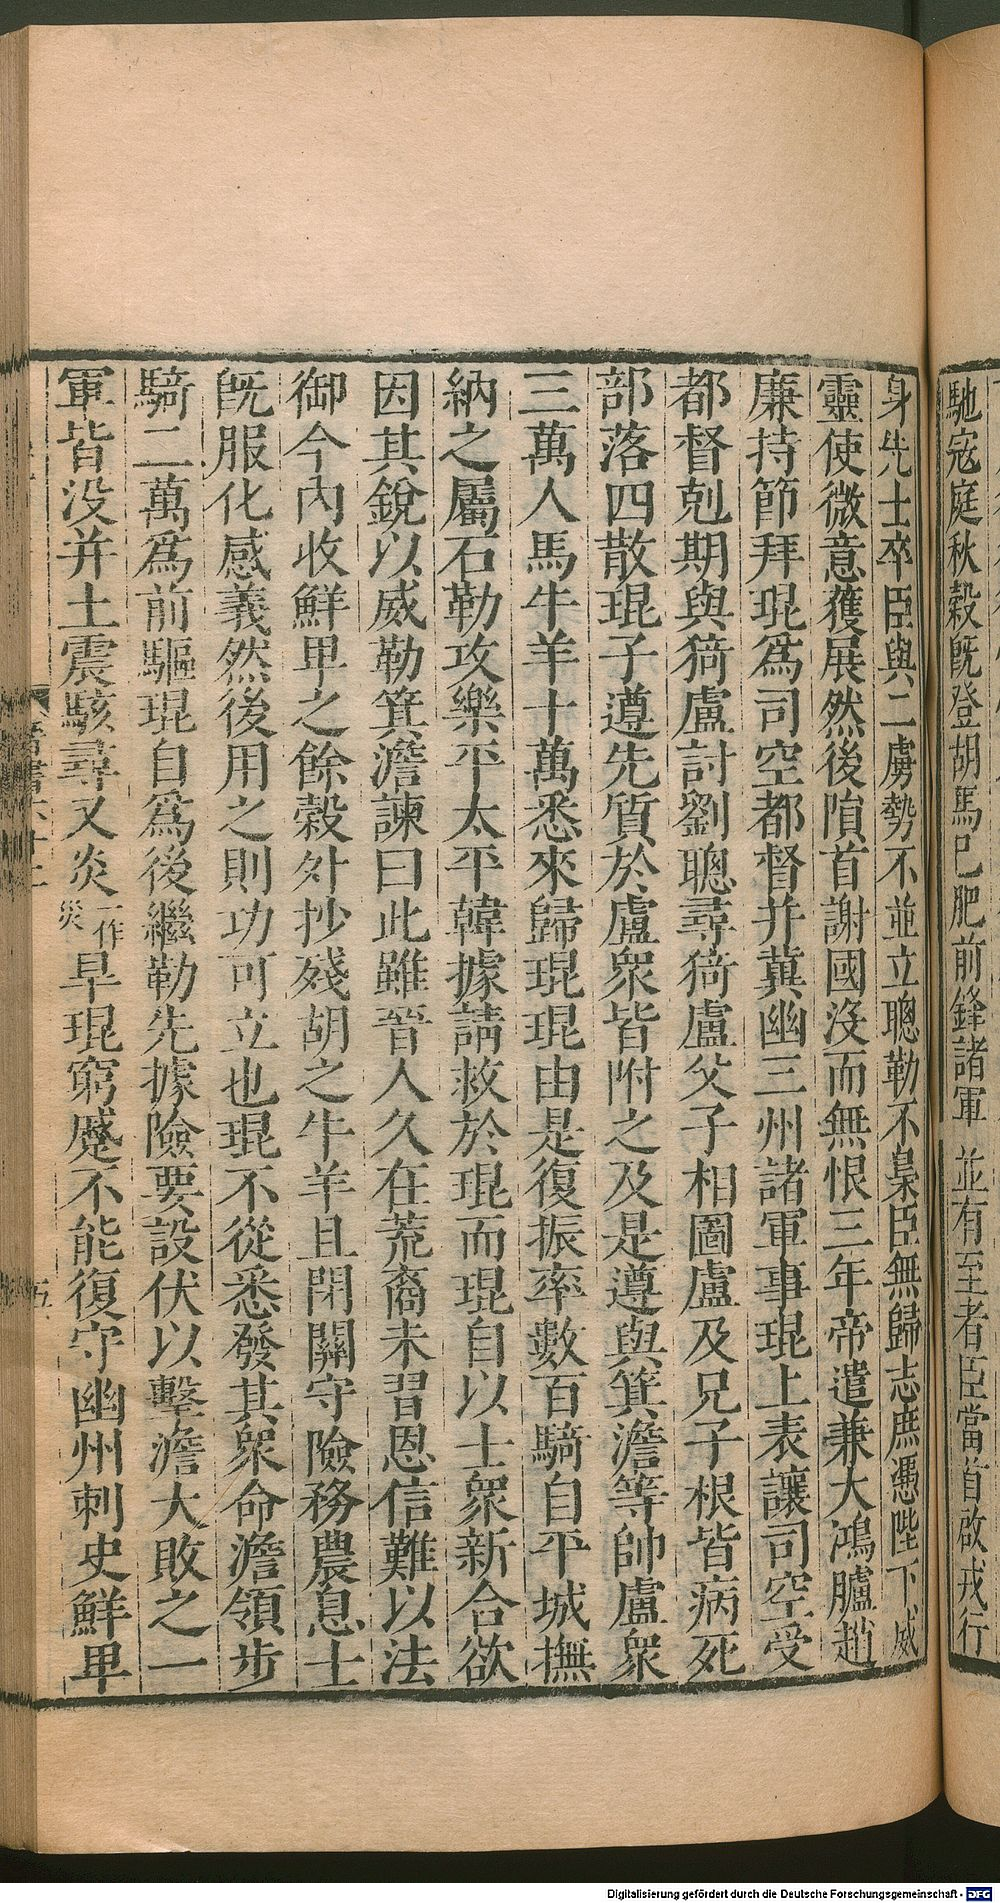 馳寇庭秋穀既登胡馬已肥前鋒諸軍並有至者臣當首啟戎行
身先士卒臣與二虜勢不並立聰勒不梟臣無歸志庶憑陛下威
靈使微意獲展然後隕首謝國沒而無恨三年帝遣兼大鴻臚趙
廉持節拜琨爲司空都督并冀幽三州諸軍事琨上表讓司空受
都督剋期與猗盧討劉聰尋猗盧父子相圖盧及兄子根皆病死
部落四散琨子遵先質於盧衆皆附之及是遵與箕澹等帥盧衆
三萬人馬牛羊十萬悉來歸琨琨由是復振率數百騎自平城撫
納之屬石勒攻樂平太平韓據請救於琨而琨自以士衆新合欲
因其銳以威勒箕澹諫曰此雖晉人久在荒裔未習恩信難以法
御今內收鮮卑之餘穀外抄殘胡之牛羊且閉關守險務農息士
既服化感義然後用之則功可立也琨不從悉發其衆命澹領步
騎二萬爲前驅琨自爲後繼勒先據險要設伏以擊澹大敗之一
軍皆没并土震駭尋又炎一作災旱琨窮蹙不能復守幽州刺史鮮卑
晉書六十二 五
Digitalisierung gefördert durch die Deutsche Forschungsgemeinschaft - DFG